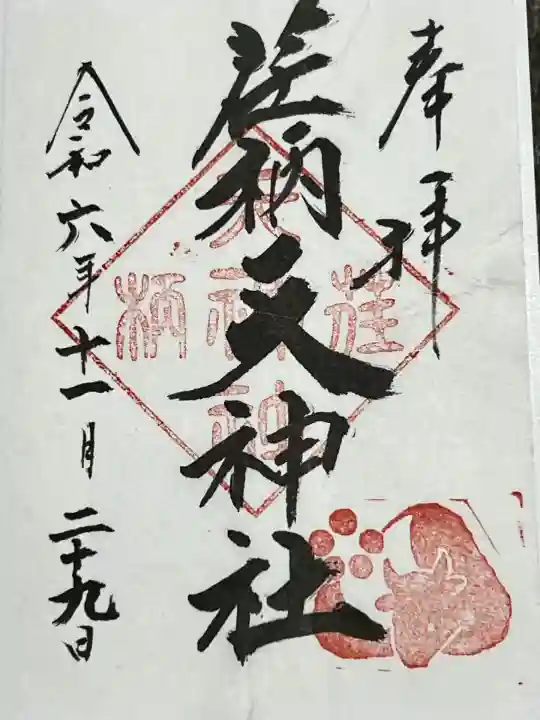 奉拝
荏柄天神社
令和六年十一月二十九日
荏柄
天神社